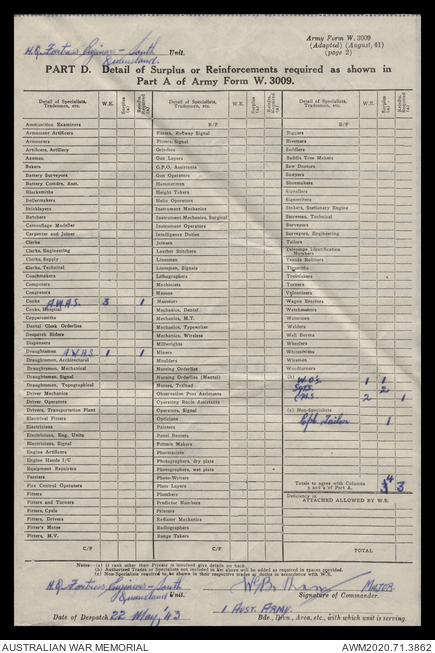 Army Form W. 3009
(Adapted) (August, 41)
(page 2)
H.Q. Fortress Engineers - South Queensland. Unit.
PART D. Detail of Surplus or Reinforcements required as shown in
Part A of Army Form W. 3009.
Detail of Specialists, Tradesmen, etc. W.E. Surplus (a) Reinfts. Required (a)
Detail of Specialists, Tradesmen, etc. W.E. Surplus (a) Reinfts. Required (a)
Detail of Specialists, Tradesmen, etc. W.E. Surplus (a) Reinfts. Required (a)
Ammunition Examiners
Armament Artificers
Armourers
Artificers, Artillery
Axemen
Bakers
Battery Surveyors
Battery Comdrs. Asst.
Blacksmiths
Boilermakers
Bricklayers
Butchers
Camouflage Modeller
Carpenter and Joiner
Clerks
Clerks, Engineering
Clerks, Supply
Clerks, Technical
Coachmakers
Computers
Conductors
Cooks A.W.A.S. 3 1
Cooks, Hospital
Coppersmiths
Dental Clerk Orderlies
Despatch Riders
Dispensers
Draughtsmen A.W.A.S 1 1
Draughtsmen, Architectural
Draughtsmen, Mechanical
Draughtsmen, Signal
Draughtsmen, Topographical
Driver Mechanics
Driver Operators
Drivers, Transportation Plant
Electrical Fitters
Electricians
Electricians, Eng. Units
Electricians, Signal
Engine Artificers
Engine Hands I/C
Equipment Repairers
Farriers
Fire Control Operators
Fitters
Fitters and Turners
Fitters, Cycle
Fitters, Drivers
Fitter's Mates
Fitters, M.V.
C/F
B/F
Fitters, Railway Signal
Fitters, Signal
Grinders
Gun Layers
G.P.O. Assistants
Gun Operators
Hammermen
Height Takers
Helio Operators
Instrument Mechanics
Instrument Mechanics, Surgical
Instrument Operators
Intelligence Duties
Joiners
Leather Stitchers
Linesmen
Linesmen, Signals
Lithographers
Machinists
Masons
Masseurs
Mechanics, Dental
Mechanics, M.T.
Mechanics, Typewriter
Mechanics, Wireless
Millwrights
Miners
Moulders
Nursing Orderlies
Nursing Orderlies (Mental)
Nurses, Trained
Observation Post Assistants
Operating Room Assistants
Operators, Signal
Opticians
Painters
Panel Beaters
Pattern Makers
Pharmacists
Photographers, dry plate
Photographers, wet plate
Photo-Writers
Plate Layers
Plumbers
Predictor Numbers
Printers
Radiator Mechanics
Radiographers
Range Takers
C/F
B/F
Riggers
Riveters
Saddlers
Saddle Tree Makers
Saw Doctors
Sawyers
Shoemakers
Signallers
Signwriters
Stokers, Stationary Engine
Storemen, Technical
Surveyors
Surveyors, Engineering
Tailors
Telescope Identification Numbers
Textile Refitters
Tinsmiths
Toolmakers
Turners
Vulcanisers
Wagon Erectors
Watchmakers
Watermen
Welders
Well Borers
Wheelers
Whitesmiths
Wiremen
Woodturners
(b) W.O's. 1 1
Sgts. 2
Cpls. 2 1
(c) Non-Specialists
Cpl. Tailor 1
Totals to agree with Columns
3 and 4 of Part A. 4 3
Deficiency in
ATTACHED ALLOWED BY W.E.
TOTAL
Notes—(a) If rank other than Private is involved give details on back.
(b) Authorized Trades or Specialists not included in the above will be added as required in spaces provided.
(c) Non-Specialists required to be shown in their respective trades or duties in accordance with W.E.
H.Q. Fortress Engineers - South Queensland Unit.
MAJOR.
Signature of Commander.
Date of Despatch 22 May '43
1 AUST. ARMY.
Bde., Divn., Area, etc., with which unit is serving.
AUSTRALIAN WAR MEMORIAL
AWM2020.71.3862